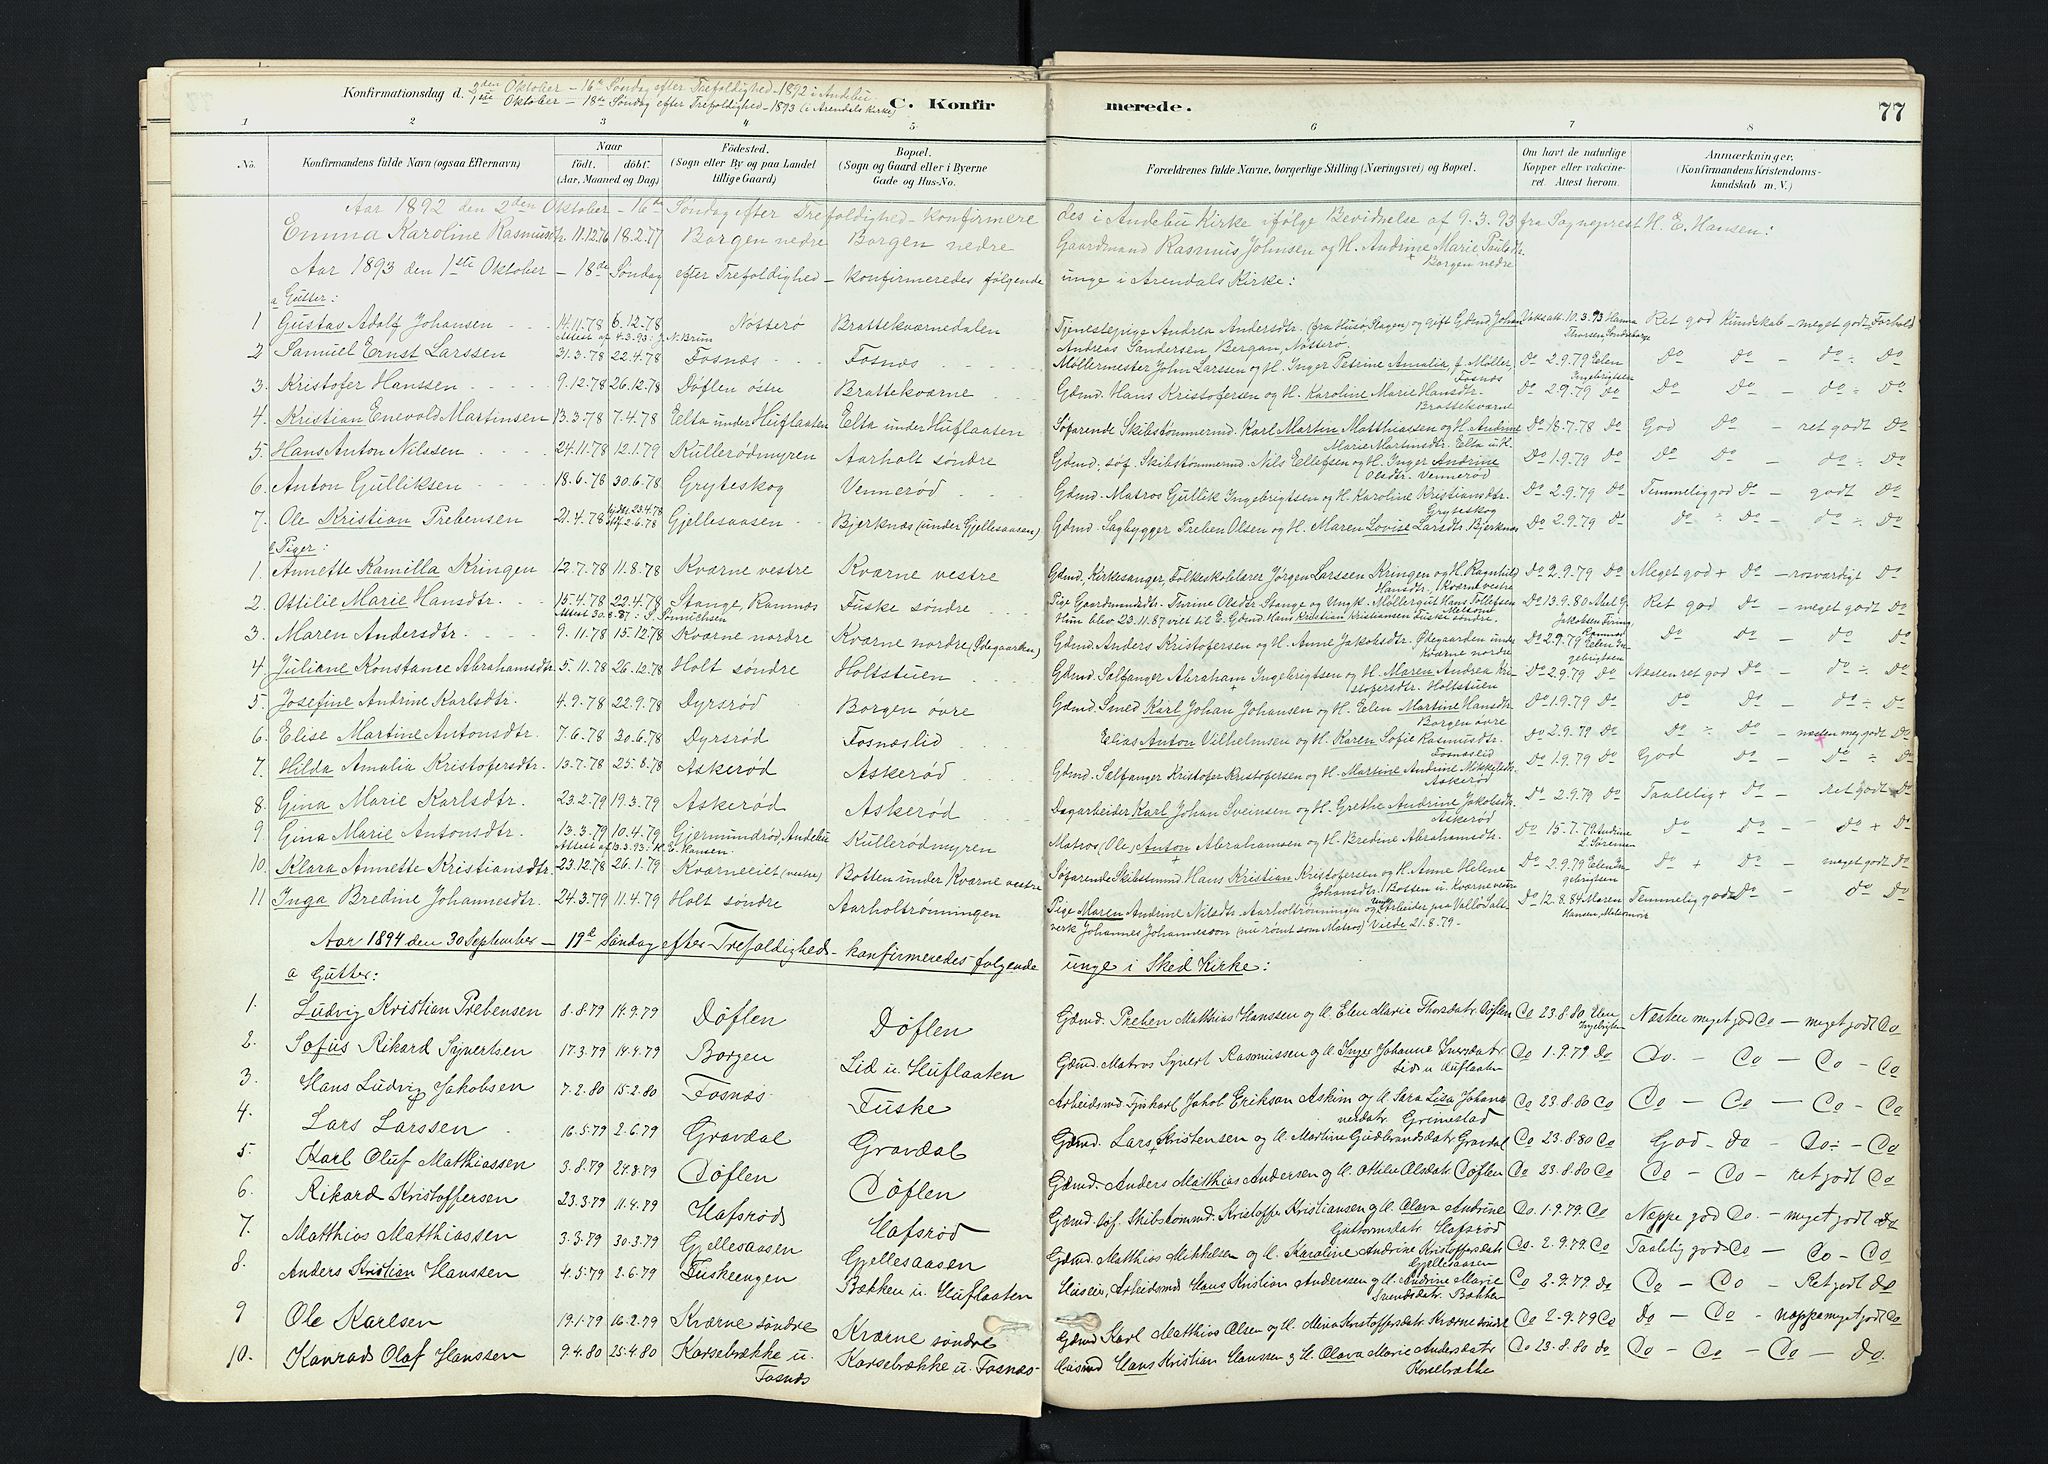 Konfirmationsdag d. 2den Oktober – 16de Søndag efter Trefoldighed – 1892 i Andebu
1ste Oktober – 18de Søndag efter Trefoldighed – 1893 (i Arendals Kirke)
C. Konfirmerede.
77
1 2 3 4 5 6 7 8
No. Konfirmandens fulde Navn (ogsaa Efternavn) Naar født, døbt, (Aar, Maaned og Dag) Fødested. (Sogn eller By og paa Landet tillige Gaard) Bopæl. (Sogn og Gaard eller i Byerne Gade og Hus-No. Forældrenes fulde Navne, borgerlige Stilling (Næringsvei) og Bopæl. Om havt de naturlige Kopper eller vakcineret. Attest herom. Anmærkninger. (Konfirmandens Kristendomskundskab m. V.)
Aar 1892 den 2den Oktober – 16de Søndag efter Trefoldighed – konfirmeredes i Andebu Kirke ifølge Bevidnelse af 9.3.93 fra Sogneprest H. E. Hansen:
Emma Karoline Rasmusdtr. 11.12.76 18.2.77 Borgen nedre Borgen nedre Gaardmand Rasmus Johnsen og H. Andrine Marie Paulsdtr. Borgen nedre
Aar 1893 den 1ste Oktober – 18de Søndag efter Trefoldighed – konfirmeredes følgende unge i Arendals Kirke:
a Gutter:
1 Gustav Adolf Johansen 14.11.78 6.12.78 Nøtterø Brattekværnedalen Tjenestepige Andrea Andersdtr. (fra Husø Skagen) og gift Gdmd. Johan Andreas Sandersen Bergan, Nøtterø Vaks.att. 10.3.93 Hanna Thorsen, Ret god Kundskab – meget godt Forhold
Attest af 4.3.93: J. N. Brun
2 Samuel Ernst Larssen 31.3.78 22.4.78 Fosnæs Fosnæs Møllermester John Larssen og H. Inger Petrine Amalia, f. Møller, Fosnæs Do 2.9.79 Elen Ingebrigtsen Do Do – do – Do
3. Kristofer Hanssen 9.12.78 26.12.78 Døflen østre Brattekværne Gdmd. Hans Kristofersen og H. Karoline Marie Hansdtr. Brattekværne Do 2.9.79 do Do Do – do – Do
4. Kristian Enevold Martinsen 13.3.78 7.4.78 Elta under Huflaaten Elta under Huflaaten Søfarende Skibstømmermd. Karl Marten Matthiassen og H. Andrine Marie Martinsdtr. Elta u. H. Do 18.7.78 Do God Do – ret godt Do
5. Hans Anton Nilssen 24.11.78 12.1.79 Kullerødmyren Aarholt søndre Gdmd. søf. Skibstømmermd. Nils Ellefsen og H. Inger Andrine Olsdtr. Vennerød Do 1.9.79 Do Do Do – do – Do
6. Anton Gulliksen 18.6.78 30.6.78 Gryteskog Vennerød Gdmd. Matros Gullik Ingebrigtsen og H. Karoline Kristiansdtr. Gryteskog Do 2.9.79 Do Temmelig god Do – godt Do
7. Ole Kristian Prebensen 21.4.78 2.6.78 Gjellesaasen Bjerknæs (under Gjellesaasen) Gdmd. Sagbygger Preben Olsen og H. Maren Lovise Larsdtr. Bjerknæs Do 2.9.79 Do Do – Do – do – Do
b Piger:
1. Annette Kamilla Kringen 12.7.78 11.8.78 Kværne vestre Kværne vestre Gdmd., Kirkesanger, Folkeskolelærer Jørgen Larssen Kringen og H. Ragnhild Hansdtr., Kværne vestre Do 2.9.79 Do Meget god + Do – rosværdigt Do
2. Ottilie Marie Hansdtr. 15.4.78 22.4.78 Stange, Ramnæs Fuske søndre Pige Gaardmandsdtr. Thrine Olsdtr. Stange og Ungk. Møllergut Hans Tollefsen Do 13.9.80 Abel G. Jakobsen Ret god Do – meget godt Do
Attest 30.8.87: S. Sönnichsen Hun blev 23.11.87 viet til E. Gdmd. Hans Kristian Kristiansen Fuske søndre.
3. Maren Andersdtr. 9.11.78 15.12.78 Kværne nordre Kværne nordre (Ødegaarden) Gdmd. Anders Kristofersen og H. Anne Jakobsdtr. Ødegaarden under Kværne nordre Do 2.9.79 Elen Ingebrigtsen Do Do – Do Do
4. Juliane Konstance Abrahamsdtr. 5.11.78 26.12.78 Holt søndre Holtstuen Gdmd. Sælfanger Abraham Ingebrigtsen og H. Maren Andrea Kristofersdtr. Holtstuen Do 2.9.79 Do Næsten ret god Do – Do – Do
5. Josefine Andrine Karlsdtr. 4.9.78 22.9.78 Dyrsrød Borgen øvre Gdmd. Smed Karl Johan Johansen og H. Elen Martine Hansdtr. Borgen øvre Do 1.9.79 Do Do Do – do – Do
6. Elise Martine Antonsdtr. 7.6.78 30.6.78 Dyrsrød Fosnæslid Elias Anton Vilhelmsen og H. Karen Sofie Rasmusdtr. Fosnæslid Do 2.9.79 Do Do – Do – næsten meg. godt Do
7. Hilda Amalia Kristofersdtr. 13.7.78 25.8.78 Askerød Askerød Gdmd. Sælfanger Kristofer Kristofersen og H. Martine Andrine Mikkelsdtr. Askerød Do 1.9.79 Do God Do – Do – Do
8. Gina Marie Karlsdtr. 23.2.79 19.3.79 Askerød Askerød Dagarbeider Karl Johan Sveinsen og H. Grethe Andrine Jakobsdtr. Askerød Do 2.9.79 Do Taalelig + Do – ret godt Do
9 Gina Marie Antonsdtr. 13.3.79 10.4.79 Gjermundrød, Andebu Kullerødmyren Matros (Ole) Anton Abrahamsen og H. Bredine Abrahamsdtr. Do 15.7.79 Andrine L. Sørensen Do Do – Do + Do
Attest af 13.3.93: H. E. Hansen.
10. Klara Annette Kristiansdtr. 23.12.78 26.1.79 Kværneeiet (vestre) Botten under Kværne vestre Søfarende Skibstmmd Hans Kristian Kristofersen og H. Anne Helene Johansdtr. Botten u. Kværne vestre Do 2.9.79 Elen Ingebrigtsen Do + Do – meget godt Do
11 Inga Bredine Johannesdtr. 24.3.79 11.4.79 Holt søndre Aarholtrønningen Pige Maren Andrine Nilsdtr. Aarholtrønningen og Ungk. Arbeider paa Vallø Saltverk Johannes Johannesson (nu rømt som Matros) Viede 21.8.79 – Do 12.8.84 Maren Hansen, Temmelig god Do – Do Do
Aar 1894 den 30 September – 19de Søndag efter Trefoldighed – konfirmeredes følgende unge i Sked Kirke:
a Gutter:
1. Ludvig Kristian Prebensen 8.8.79 14.9.79 Døflen Døflen Gdmd. Preben Matthias Hanssen og H. Elen Marie Thorsdatr Døflen Do 23.8.80 Elen Ingebrigtsen Næsten meget god Do – meget godt Do
2. Sofus Rikard Syvertsen 17.3.79 14.4.79 Borgen Lid u. Huflaaten Gdmd. Matros Syvert Rasmussen og H. Inger Johanne Iversdatr Lid u Huflaaten Do 1.9.79 Do Do. – Do – Do – Do
3. Hans Ludvig Jakobsen 7.2.80 15.2.80 Fosnæs Fuske Arbeidsmd. Jakob Erikson Askim og H. Sara Lisa Johannesdatr Grimestad Do 23.8.80 Do Do – Do – Do – Do
4. Lars Larssen 16.5.79 2.6.79 Gravdal Gravdal Gdmd. Lars Kristensen og H. Martine Gudbrandsdatr Gravdal Do 23.8.80 Do God – do – Do – Do
5. Karl Oluf Matthiassen 3.8.79 24.8.79 Døflen Døflen Gdmd. Anders Matthias Andersen og H. Ottilie Olsdatr Døflen Do 23.8.80 Do Do – Do – ret godt Do
6. Rikard Kristoffersen 23.3.79 11.4.79 Hafsrød Hafsrød Gdmd. søf. Skibstømmd. Kristoffer Kristiansen og H. Olava Andrine Guttormsdatr Hafsrød Do. 1.9.79. Do Neppe god Do. – meget godt Do
7. Matthias Matthiassen 3.3.79 30.3.79 Gjellesaasen Gjellesaasen Gdmd. Matthias Mikkelsen og H. Karoline Andrine Kristoffersdatr Gjellesaasen Do. 2.9.79. Do Taalelig god Do – Do – Do
8. Anders Kristian Hanssen 4.5.79 2.6.79 Fuskeengen Bakken u. Huflaaten Huseier, Arbeidsmd Hans Kristian Anderssen og H. Andrine Marie Svendsdatr. Bakken Do 2.9.79 do Do – Do – Ret godt Do
9 Ole Karlsen 19.1.79 16.2.79 Kværne søndre Kværne søndre Gdmd Karl Matthias Olsen og H. Mina Kristoffersdatr Kværne søndre Do 2.9.79 Do do – Do – neppe meget godt Do
10. Konrad Olaf Hanssen 9.4.80 25.4.80 Korsebrække u. Fosnæs Korsebrække u. Fosnæs Hans Kristian Hanssen & H. Olava Marie Andersdatr Korsebrække Do 23.8.80 do Do – Do – Do – Do.